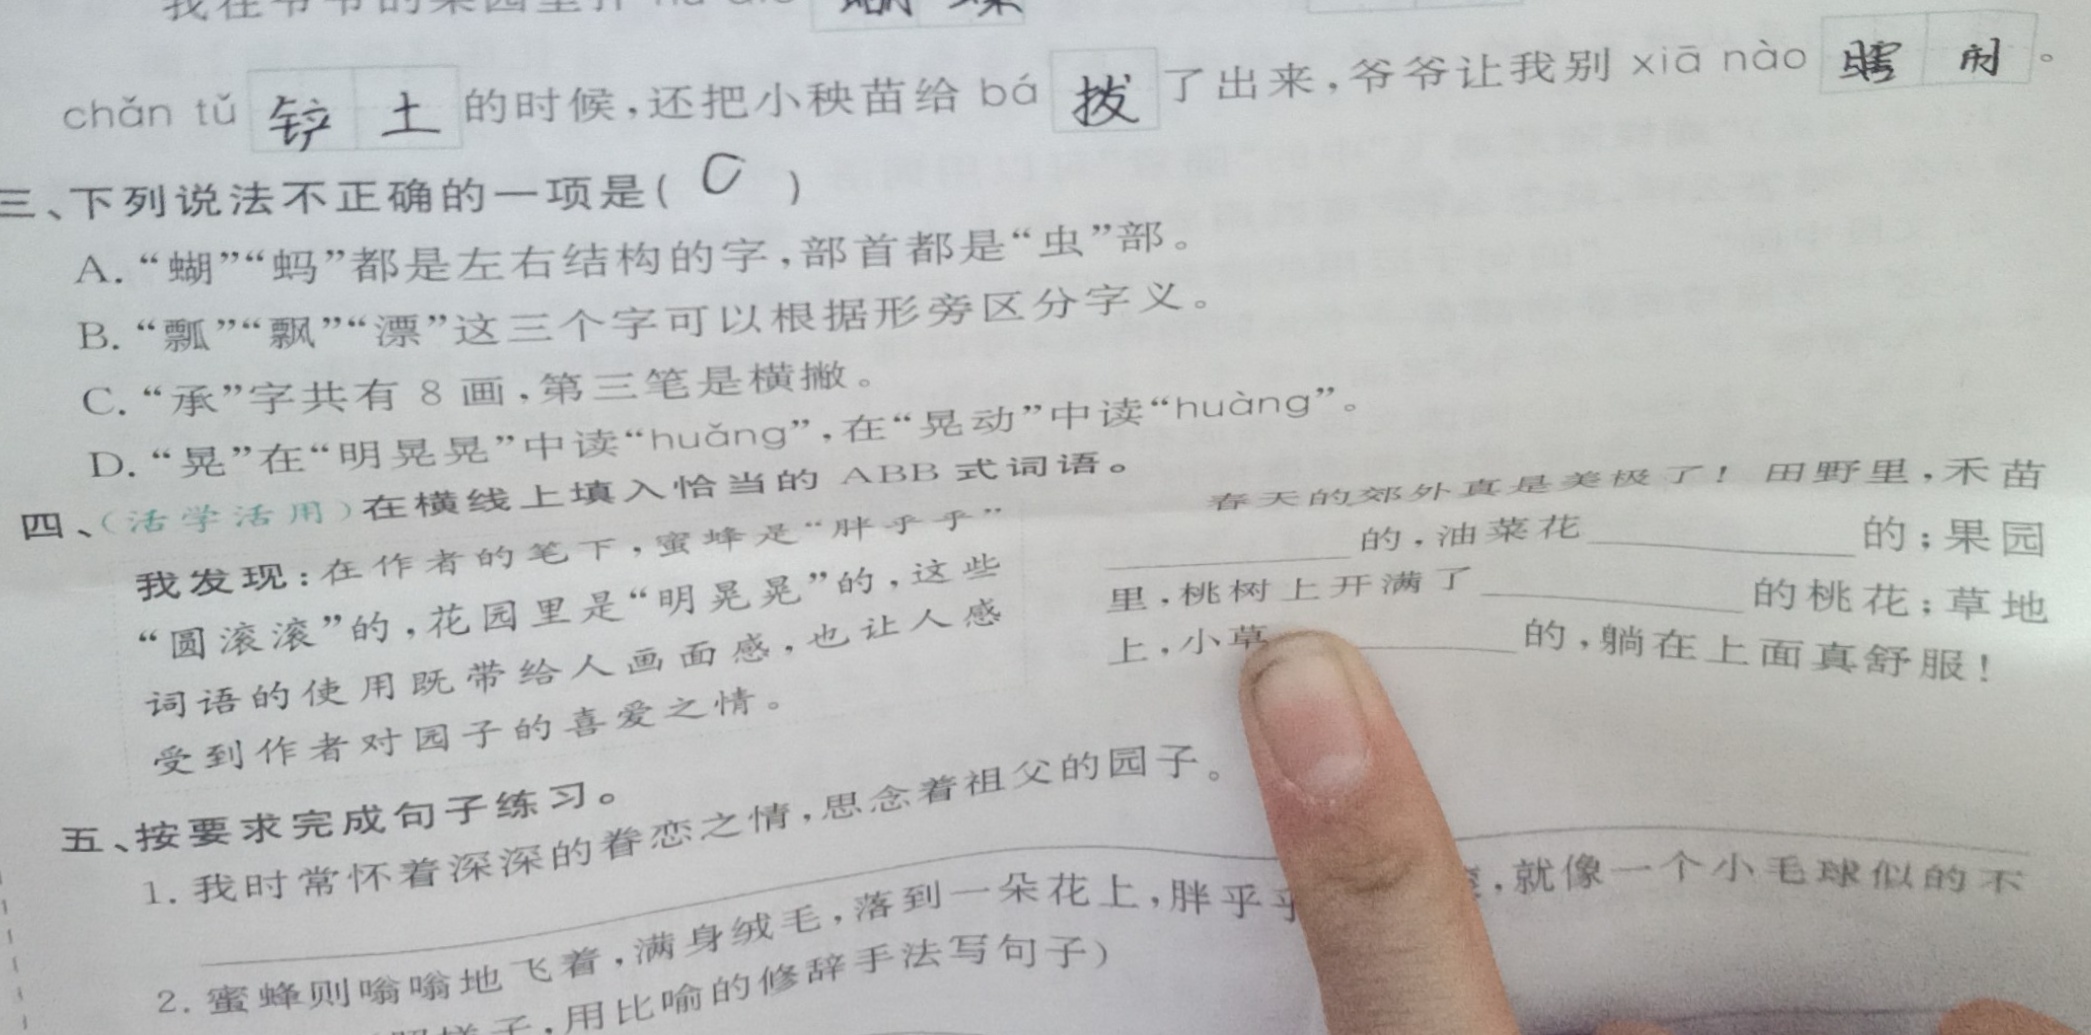 我在爷爷的菜园里扑 hú dié 蝴蝶
chǎn tǔ 铲土 的时候，还把小秧苗给 bá 拔 了出来，爷爷让我别 xiā nào 瞎闹 。
三、下列说法不正确的一项是( C )
A. “蝴”“蚂”都是左右结构的字，部首都是“虫”部。
B. “瓢”“飘”“漂”这三个字可以根据形旁区分字义。
C. “承”字共有 8 画，第三笔是横撇。
D. “晃”在“明晃晃”中读“huǎng”，在“晃动”中读“huàng”。
四、(活学活用)在横线上填入恰当的 ABB 式词语。
我发现：在作者的笔下，蜜蜂是“胖乎乎”
“圆滚滚”的，花园里是“明晃晃”的，这些
词语的使用既带给人画面感，也让人感
受到作者对园子的喜爱之情。
春天的郊外真是美极了！田野里，禾苗
________的，油菜花________的；果园
里，桃树上开满了________的桃花；草地
上，小草________的，躺在上面真舒服！
五、按要求完成句子练习。
1. 我时常怀着深深的眷恋之情，思念着祖父的园子。
2. 蜜蜂则嗡嗡地飞着，满身绒毛，落到一朵花上，胖乎乎 ，就像一个小毛球似的不
样子，用比喻的修辞手法写句子)